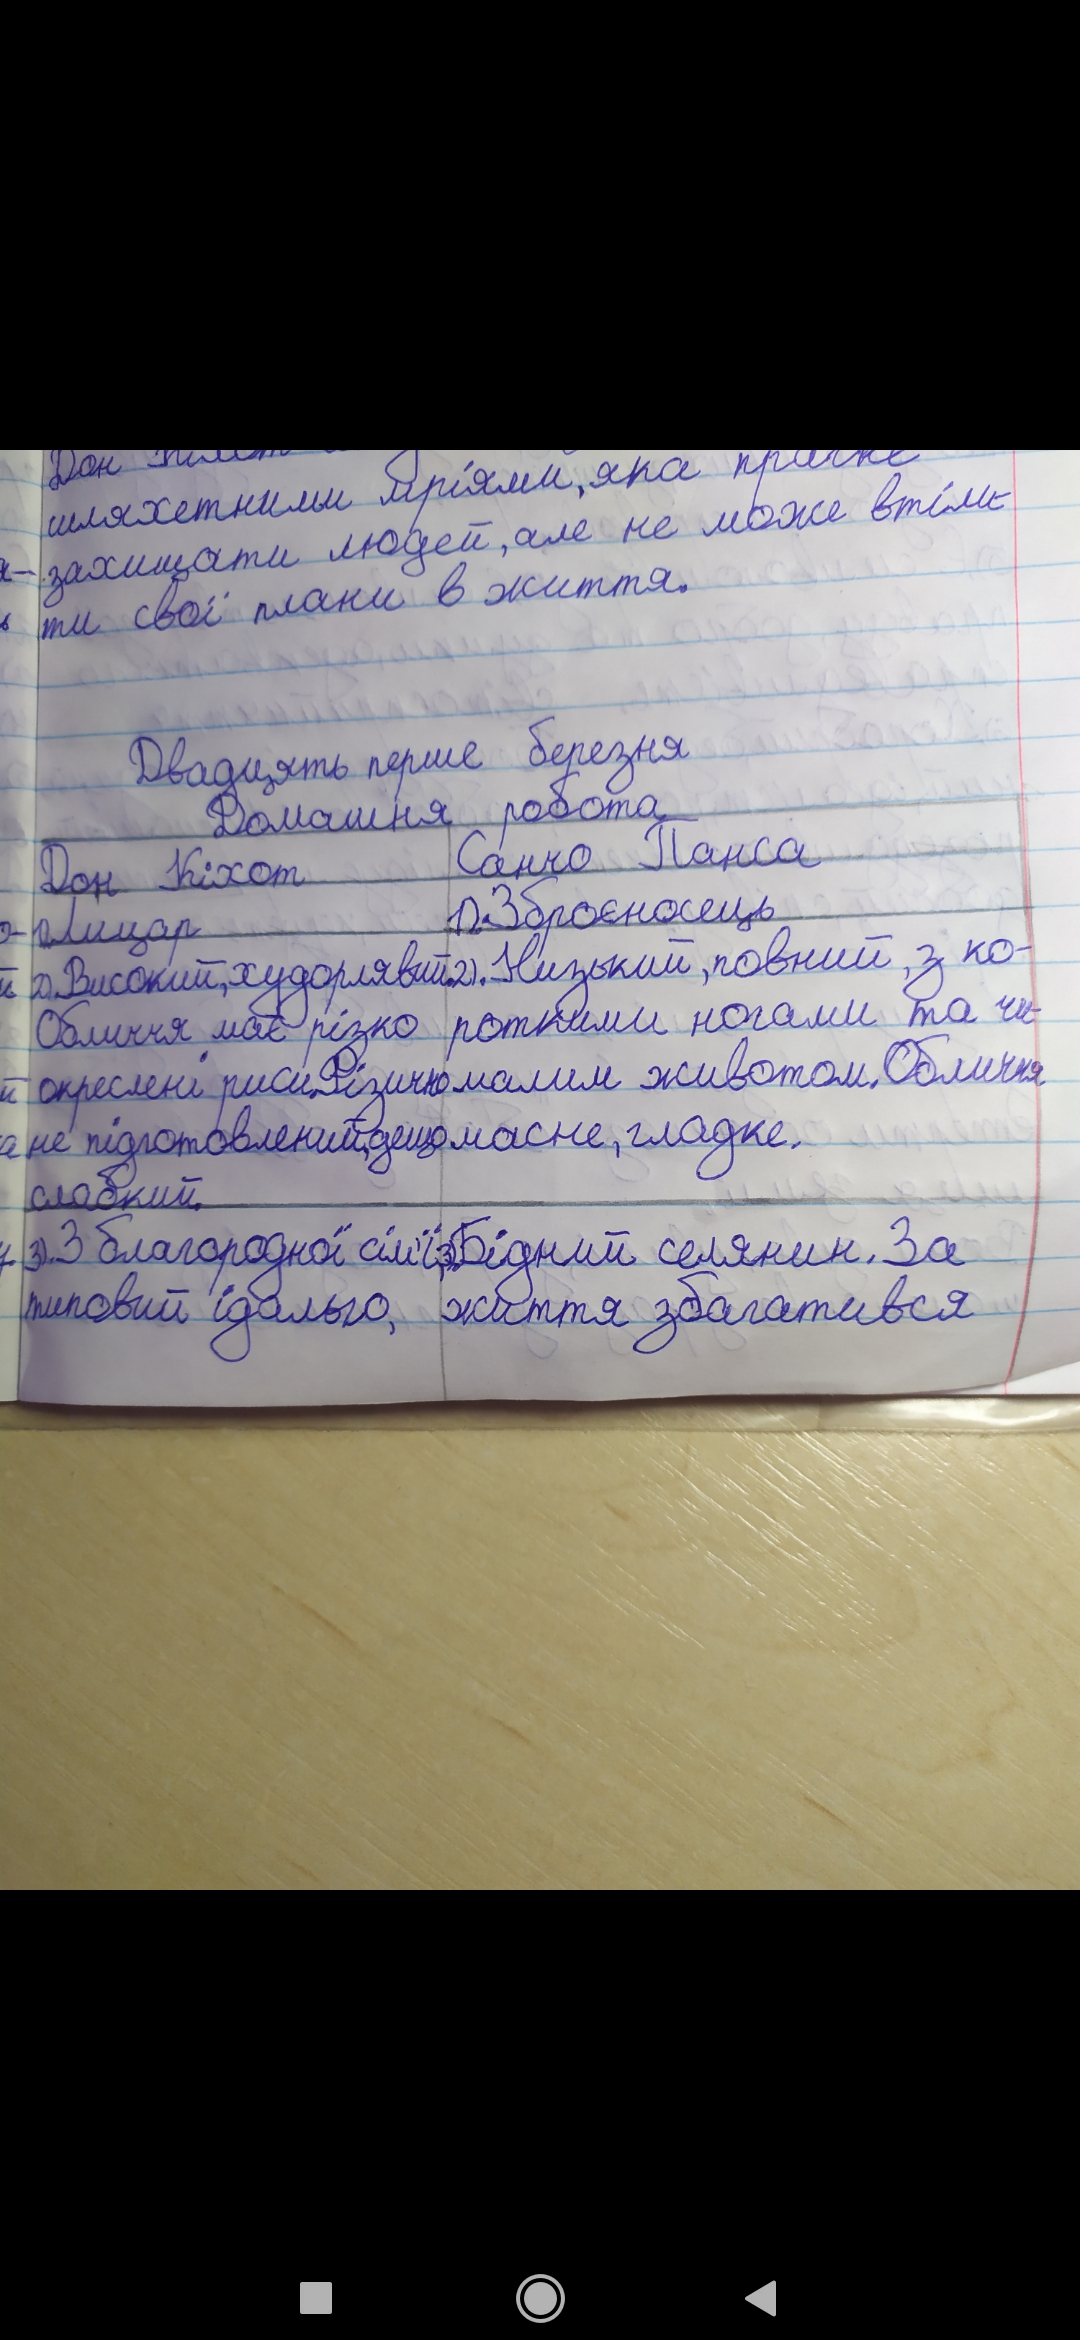 Дон
шляхетними мріями, яка прагне
захищати людей, але не може втіли-
ти свої плани в життя.
Двадцять перше березня
Домашня робота
Дон Кіхот Санчо Панса
1). Лицар 1). Зброєносець
2). Високий, худорлявий. 2). Низький, повний, з ко-
Обличчя має різко роткими ногами та чи-
окреслені риси. Фізично малим животом. Обличчя
не підготовлений, дещо масне, гладке.
слабкий.
3). З благородної сім'ї, 3). Бідний селянин. За
типовий ідальго, життя збагатився